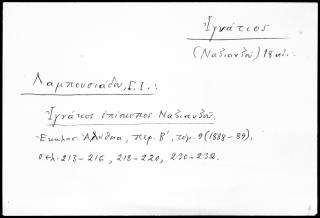 Ἰγνάτιος
(Ναζιανζοῦ) 18 αἰ.
Λαμπουσιάδου, Γ. Ι. :
Ἰγνάτιος ἐπίσκοπος Ναζιανζοῦ.
Ἐκκλησ. Ἀλήθεια, περ. Β', τόμ. 9 (1888-89),
σελ. 213-216, 218-220, 230-232.